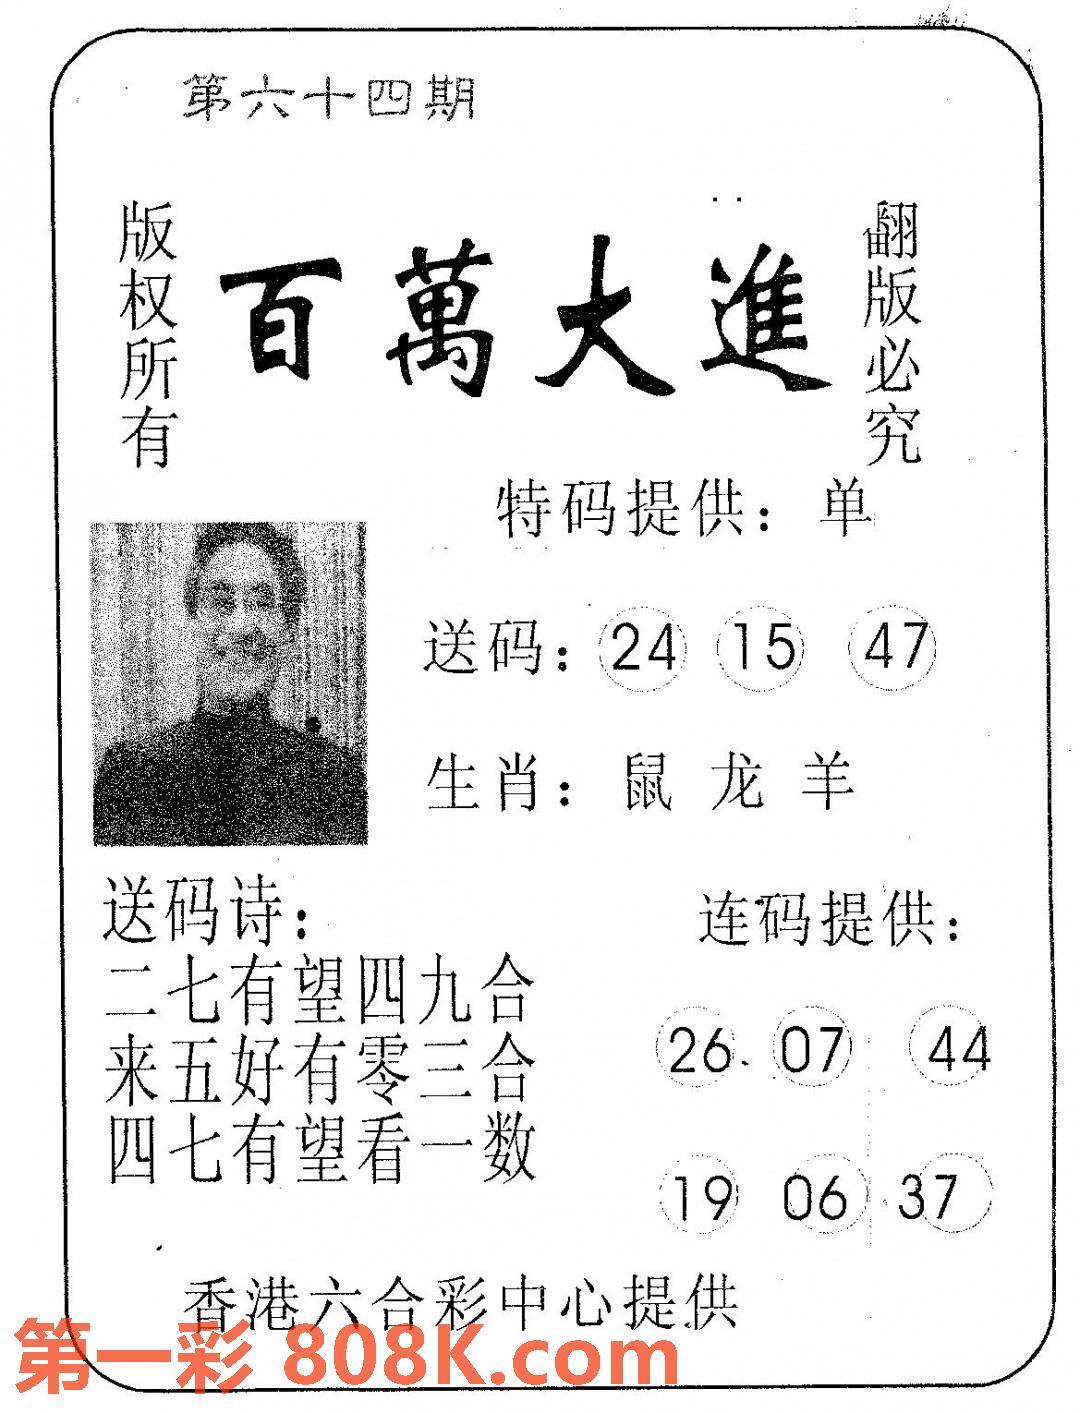 第六十四期
版权所有
百萬大進
翻版必究
特码提供：单
送码：24 15 47
生肖：鼠 龙 羊
送码诗：
二七有望四九合
来五好有零三合
四七有望看一数
连码提供：
26 07 44
19 06 37
香港六合彩中心提供
第一彩 808K.com